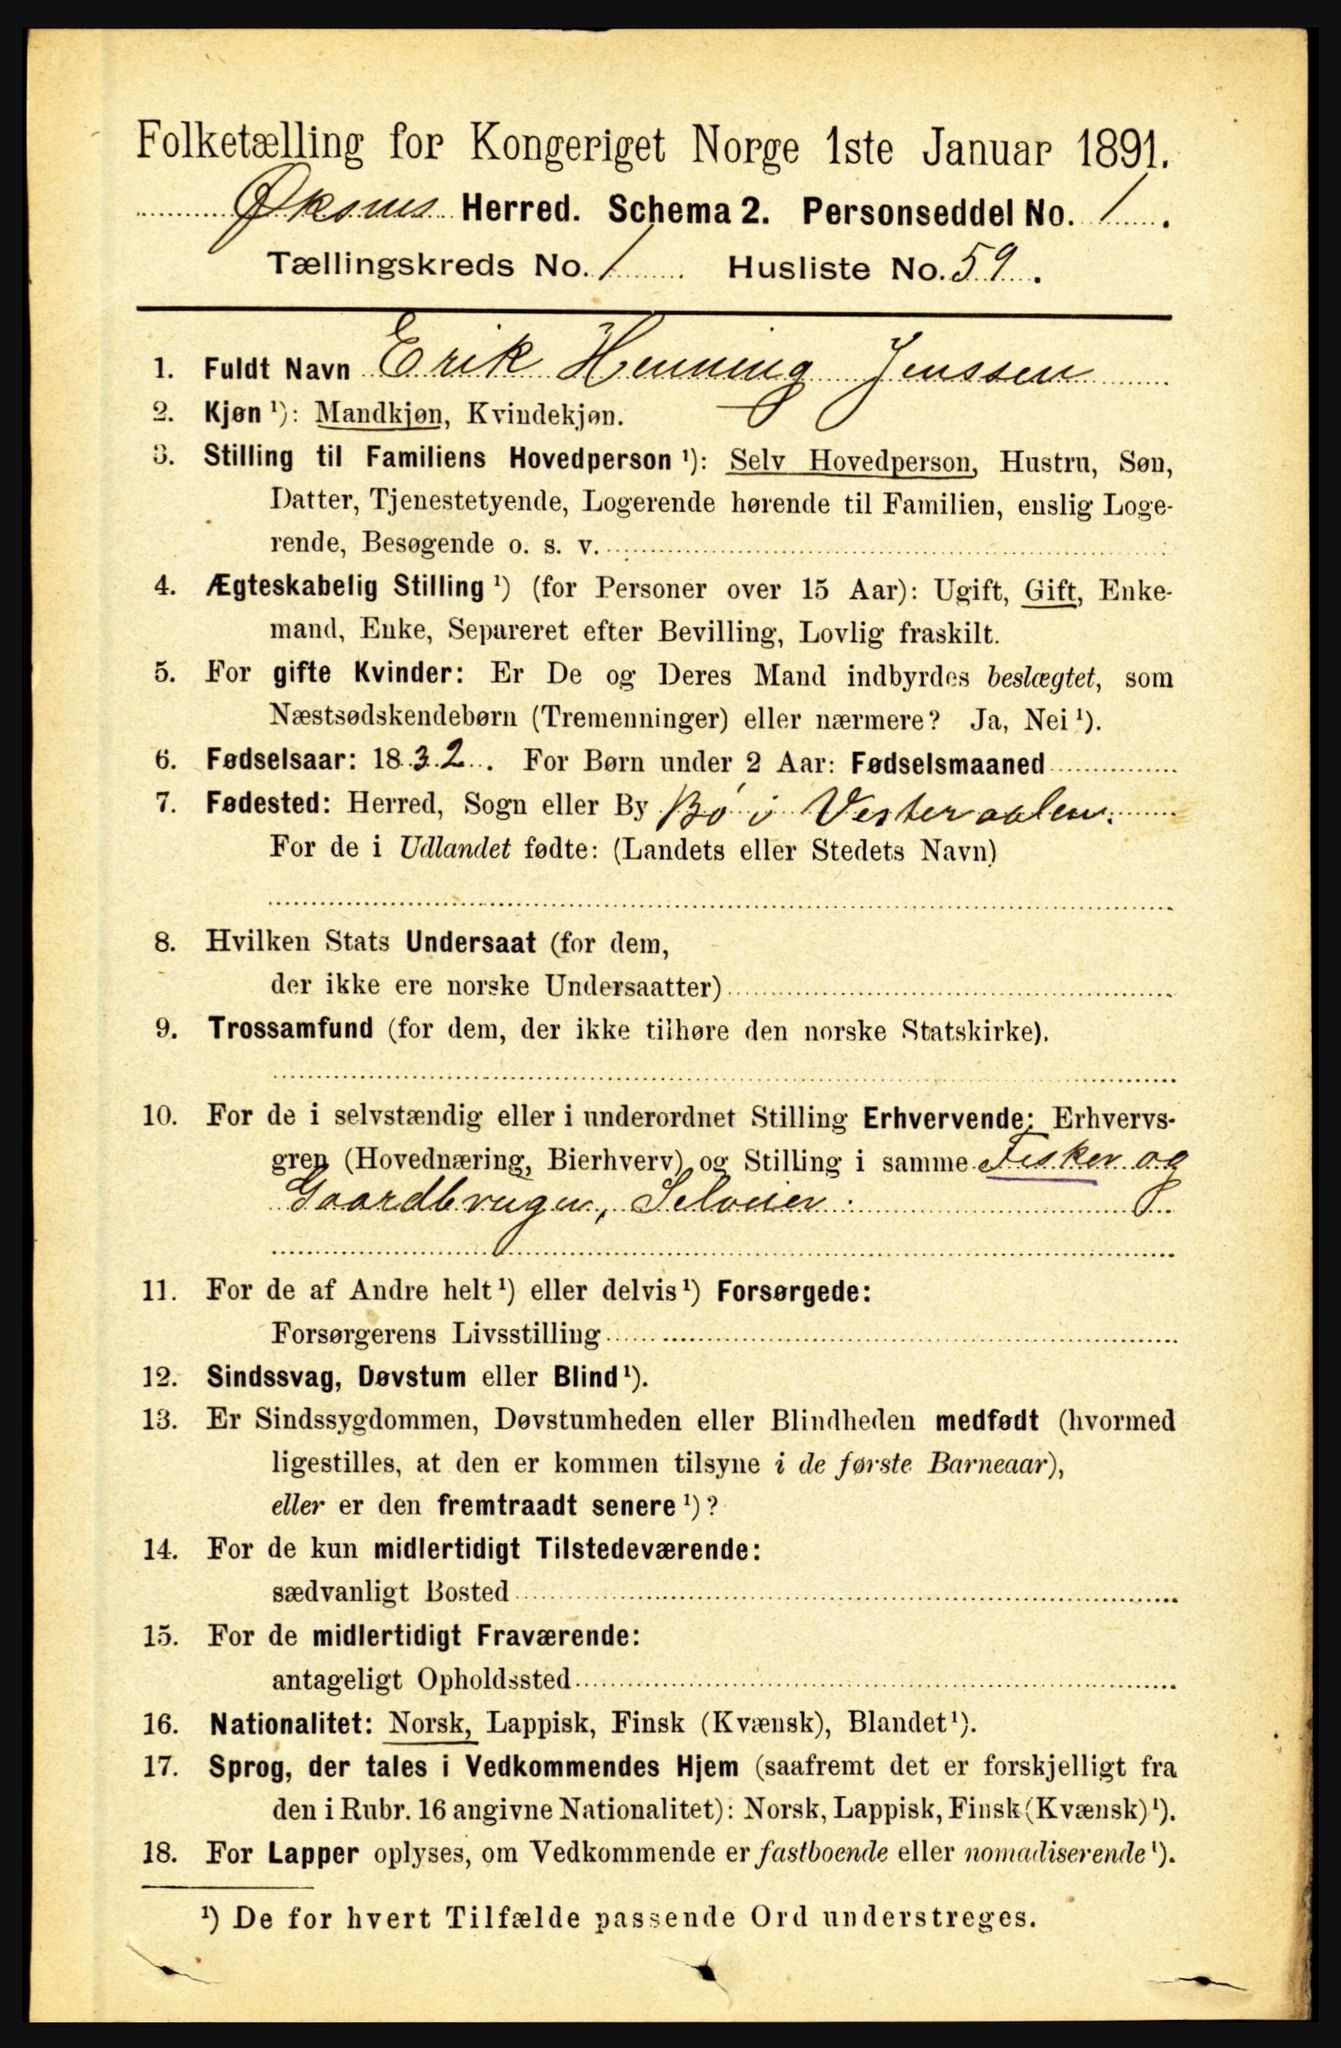 Folketælling for Kongeriget Norge 1ste Januar 1891.
Øksnes Herred. Schema 2. Personseddel No. 1.
Tællingskreds No. 1 Husliste No. 59.
1. Fuldt Navn Erik Henning Jenssen
2. Kjøn ¹): Mandkjøn, Kvindekjøn.
3. Stilling til Familiens Hovedperson ¹): Selv Hovedperson, Hustru, Søn,
Datter, Tjenestetyende, Logerende hørende til Familien, enslig Loge-
rende, Besøgende o. s. v.
4. Ægteskabelig Stilling ¹) (for Personer over 15 Aar): Ugift, Gift, Enke-
mand, Enke, Separeret efter Bevilling, Lovlig fraskilt.
5. For gifte Kvinder: Er De og Deres Mand indbyrdes beslægtet, som
Næstsødskendebørn (Tremenninger) eller nærmere? Ja, Nei ¹).
6. Fødselsaar: 1832. For Børn under 2 Aar: Fødselsmaaned
7. Fødested: Herred, Sogn eller By Bø i Vesteraalen.
For de i Udlandet fødte: (Landets eller Stedets Navn)
8. Hvilken Stats Undersaat (for dem,
der ikke ere norske Undersaatter)
9. Trossamfund (for dem, der ikke tilhøre den norske Statskirke).
10. For de i selvstændig eller i underordnet Stilling Erhvervende: Erhvervs-
gren (Hovednæring, Bierhverv) og Stilling i samme Fisker og
Gaardbruger, Selveier.
11. For de af Andre helt ¹) eller delvis ¹) Forsørgede:
Forsørgerens Livsstilling
12. Sindssvag, Døvstum eller Blind ¹).
13. Er Sindssygdommen, Døvstumheden eller Blindheden medfødt (hvormed
ligestilles, at den er kommen tilsyne i de første Barneaar),
eller er den fremtraadt senere ¹)?
14. For de kun midlertidigt Tilstedeværende:
sædvanligt Bosted
15. For de midlertidigt Fraværende:
antageligt Opholdssted
16. Nationalitet: Norsk, Lappisk, Finsk (Kvænsk), Blandet ¹).
17. Sprog, der tales i Vedkommendes Hjem (saafremt det er forskjelligt fra
den i Rubr. 16 angivne Nationalitet): Norsk, Lappisk, Finsk (Kvænsk) ¹).
18. For Lapper oplyses, om Vedkommende er fastboende eller nomadiserende ¹).
¹) De for hvert Tilfælde passende Ord understreges.